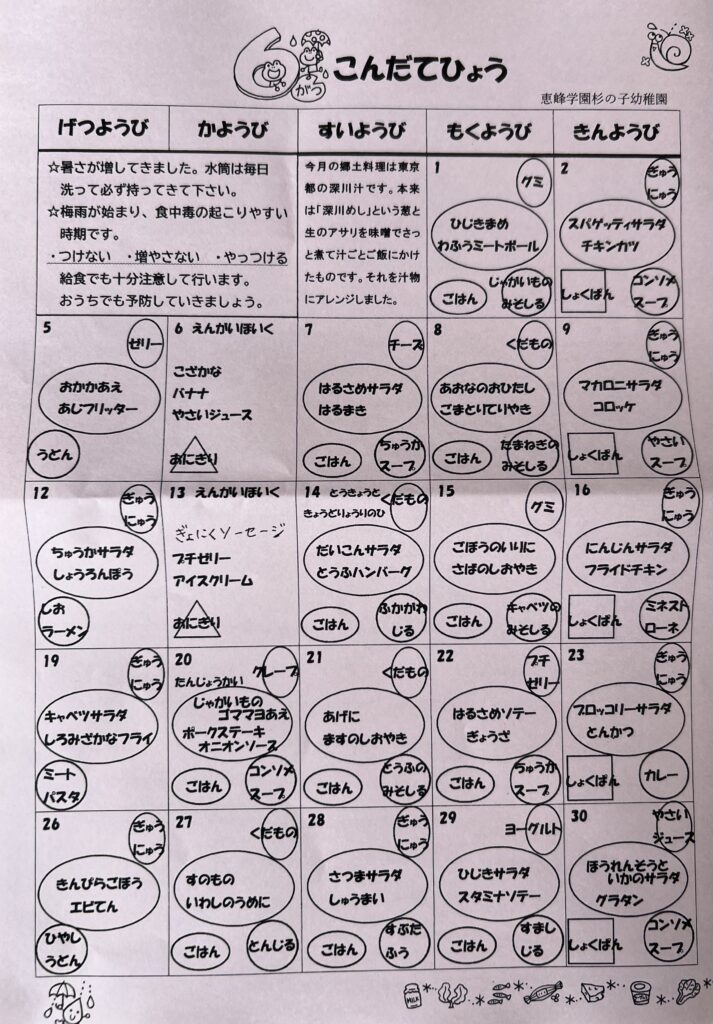 6
がつ
こんだてひょう
恵峰学園杉の子幼稚園
げつようび
かようび
すいようび
もくようび
きんようび
☆暑さが増してきました。水筒は毎日
洗って必ず持ってきて下さい。
☆梅雨が始まり、食中毒の起こりやすい
時期です。
・つけない ・増やさない ・やっつける
給食でも十分注意して行います。
おうちでも予防していきましょう。
今月の郷土料理は東京
都の深川汁です。本来
は「深川めし」という葱と
生のアサリを味噌でさっ
と煮て汁ごとご飯にかけ
たものです。それを汁物
にアレンジしました。
1
グミ
ひじきまめ
わふうミートボール
ごはん
じゃがいもの
みそしる
2
ぎゅう
にゅう
スパゲッティサラダ
チキンカツ
しょくぱん
コンソメ
スープ
5
ゼリー
おかかあえ
あじフリッター
うどん
6 えんがいほいく
こざかな
バナナ
やさいジュース
おにぎり
7
チーズ
はるさめサラダ
はるまき
ごはん
ちゅうか
スープ
8
くだもの
あおなのおひたし
ごまとりてりやき
ごはん
たまねぎの
みそしる
9
ぎゅう
にゅう
マカロニサラダ
コロッケ
しょくぱん
やさい
スープ
12
ぎゅう
にゅう
ちゅうかサラダ
しょうろんぽう
しお
ラーメン
13 えんがいほいく
ぎょにくソーセージ
プチゼリー
アイスクリーム
おにぎり
14 とうきょうと
きょうどりょうりのひ
くだもの
だいこんサラダ
とうふハンバーグ
ごはん
ふかがわ
じる
15
グミ
ごぼうのいりに
さばのしおやき
ごはん
キャベツの
みそしる
16
ぎゅう
にゅう
にんじんサラダ
フライドチキン
しょくぱん
ミネスト
ローネ
19
ぎゅう
にゅう
キャベツサラダ
しろみざかなフライ
ミート
パスタ
20
たんじょうかい
クレープ
じゃがいもの
ゴママヨあえ
ポークステーキ
オニオンソース
ごはん
コンソメ
スープ
21
くだもの
あげに
ますのしおやき
ごはん
とうふの
みそしる
22
プチ
ゼリー
はるさめソテー
ぎょうざ
ごはん
ちゅうか
スープ
23
ぎゅう
にゅう
ブロッコリーサラダ
とんかつ
しょくぱん
カレー
26
ぎゅう
にゅう
きんぴらごぼう
エビてん
ひやし
うどん
27
くだもの
すのもの
いわしのうめに
ごはん
とんじる
28
ぎゅう
にゅう
さつまサラダ
しゅうまい
ごはん
すぶた
ふう
29
ヨーグルト
ひじきサラダ
スタミナソテー
ごはん
すまし
じる
30
やさい
ジュース
ほうれんそうと
いかのサラダ
グラタン
しょくぱん
コンソメ
スープ
MILK